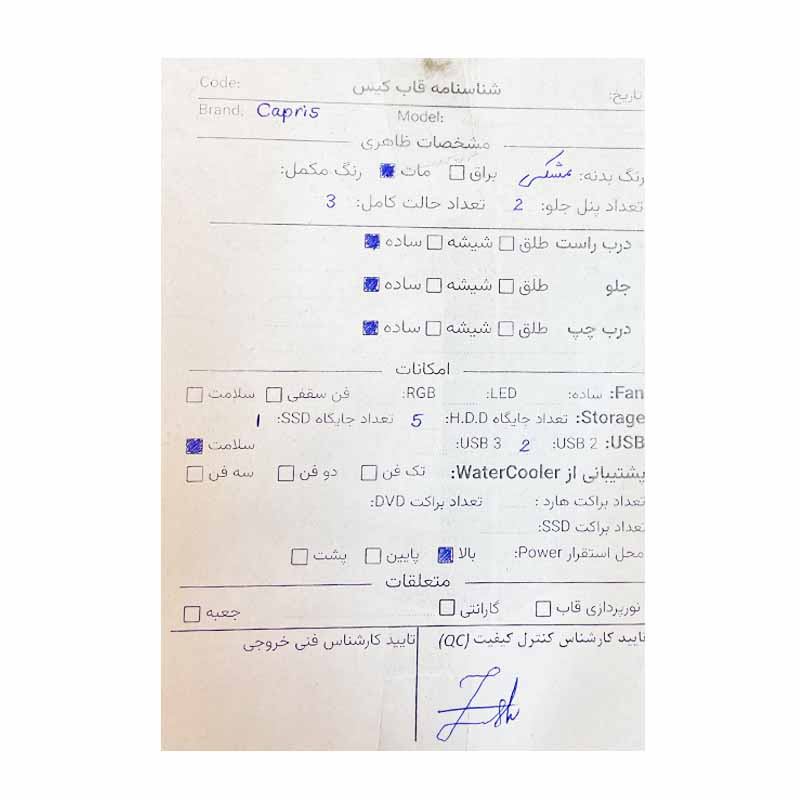 تاریخ: شناسنامه قاب کیس Code:
Brand: Capris Model:
مشخصات ظاهری
رنگ بدنه: مشکی براق ☐ مات ☒ رنگ مکمل:
تعداد پنل جلو: 2 تعداد حالت کامل: 3
درب راست طلق ☐ شیشه ☐ ساده ☒
جلو طلق ☐ شیشه ☐ ساده ☒
درب چپ طلق ☐ شیشه ☐ ساده ☒
امکانات
Fan: ساده: LED: RGB: فن سقفی ☐ سلامت ☐
Storage: تعداد جایگاه H.D.D: 5 تعداد جایگاه SSD: 1
USB: USB 2: 2 USB 3: سلامت ☒
پشتیبانی از WaterCooler: تک فن ☐ دو فن ☐ سه فن ☐
تعداد براکت هارد : تعداد براکت DVD:
تعداد براکت SSD:
محل استقرار Power: بالا ☒ پایین ☐ پشت ☐
متعلقات
نورپردازی قاب ☐ گارانتی ☐ جعبه ☐
تایید کارشناس کنترل کیفیت (QC) تایید کارشناس فنی خروجی